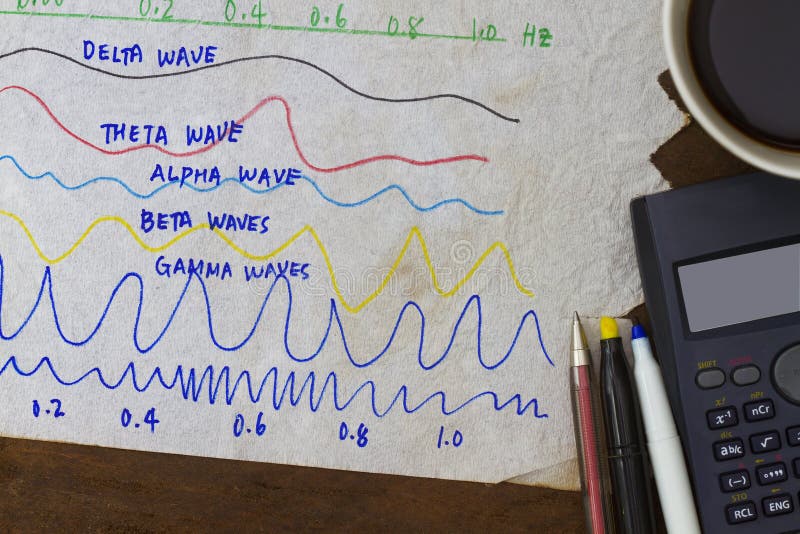 0.00 0.2 0.4 0.6 0.8 1.0 Hz
DELTA WAVE
THETA WAVE
ALPHA WAVE
BETA WAVES
GAMMA WAVES
0.2 0.4 0.6 0.8 1.0
dreamstime
SHIFT
x! nPr
x⁻¹ nCr
d/c
ab/c √
(—) °’”
STO
RCL ENG